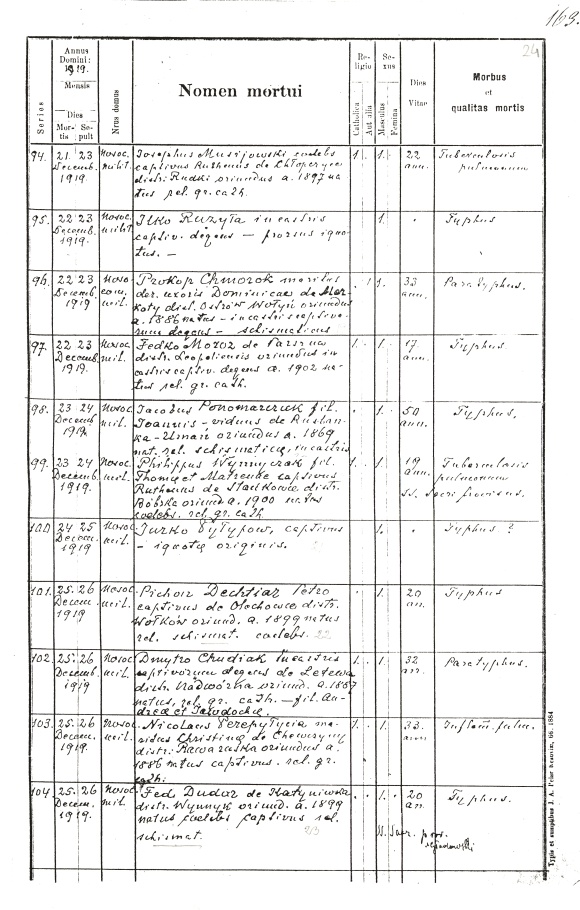 163.
24
Series
Annus Domini: 1919.
Mensis
Dies
Mortis Sepult
Nrus domus
Nomen mortui
Religio
Catholica
Aut alia
Sexus
Masculus
Femina
Dies Vitae
Morbus
et
qualitas mortis
94. 21. 23 Decemb. 1919. Nosoc. milit.
Josephus Musijowski caelebs
captivus Ruthenus de
distr. Rudki oriundus a. 1897 na
tus rel. gr. cath.
1. 1. 22 ann. Tuberculosis pulmonum
95. 22 23 Decemb. 1919. Nosoc. milit.
Ilko Ruzyła in castris
captiv. degens — prorsus igno
tus. —
1. Typhus
96. 22 23 Decemb. 1919 Nosocom. mil.
Prokop Chmorok maritus
der. uxoris Dominicae de
koty dist. Ostrów Wołyń oriundus
a. 1886 natus — in castris captivo
rum degens — schismaticus
1 1. 33 ann. Paratyphus.
97. 22 23 Decemb. 1919 Nosoc. mil.
Fedko Moroz de
distr. Leopoliensis oriundus in
castris captiv. degens a. 1902 na
tus rel. gr. cath.
1. 1. 17 ann. Typhus
98. 23 24 Decemb. 1919. Nosoc. mil.
Jacobus Ponomarczuk fil.
Joannis — viduus de Ruslan
ka - Umań oriundus a. 1869
nat. rel. schismatica, in castris
1. 50 ann. Typhus,
99. 23 24 Decemb. 1919 Nosoc. mil.
Philippus Wynnyczak fil.
Thomę et Matronae captivus
Ruthenus de Stadkowce distr.
Bóbrka oriund. a. 1900 natus
caelebs. rel. gr. cath
1. 1. 19 ann. Tuberculosis
pulmonum
ss. Sacri provisus.
100 24 25 Decem. 1919 Nosoc. mil.
Jurko Pyłypow, captivus
— ignotę originis.
1. Typhus ?
101. 25. 26 Decem. 1919 Nosoc. mil.
Pichor Dechtiar Petro
captivus de Olechowce distr.
Wołków oriund. a. 1899 natus
rel. schismat. caelebs. 22
1. 20 an. Typhus
102. 25. 26 Decem. 1919 Nosoc. mil.
Dmytro Chudiak in castris
captivorum degens de
distr. Nadwórna oriund. a. 1887
natus, rel. gr. cath. — fil. An
dreę et Jawdochę.
1. 1. 32 an. Paratyphus.
103. 25. 26 Decem. 1919 Nosoc. mil.
Nicolaus Perepłycia ma
ritus Christinę de
distr. Rawa ruska oriundus a.
1886 natus captivus. rel. gr.
cath.
1. 1. 33 an. Inflam. pulm.
104. 25. 26 Decem. 1919 Nosoc. mil.
Fed Dudar de Katyniwska
distr. Wynnyk oriund. a. 1899
natus caelebs captivus rel.
schismat. 23
1. 20 an. Typhus.
ss. Sacr. prov.
Typis et sumptibus J. A. Pelar Rzeszów, 66. 1884